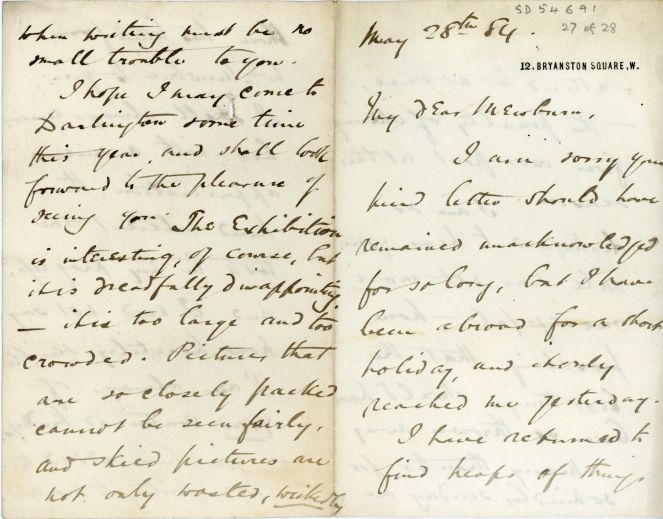 SD 54691
27 of 28
May 28th 84.
12, BRYANSTON SQUARE, W.
My dear Newburn,
I am sorry your
kind letter should have
remained unacknowledged
for so long, but I have
been abroad for a short
holiday, and it only
reached me yesterday.
I have returned to
find heaps of things
when writing must be no
small trouble to you.
I hope I may come to
Darlington some time
this year, and shall look
forward to the pleasure of
seeing you. The Exhibition
is interesting, of course, but
it is dreadfully disappointing
— it is too large and too
crowded. Pictures that
are so closely packed
cannot be seen fairly,
and skied pictures are
not only wasted, wickedly